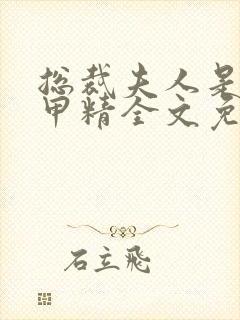 总裁夫人是
甲精全文免
石立飛